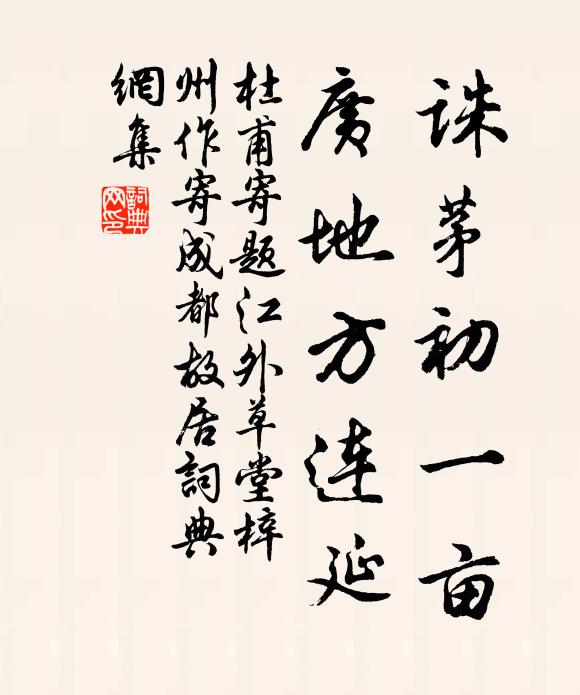 誅茅初一亩
廣地方連延
杜甫寄題江外草堂梓
州作寄成都故居詞典
網集
詞典
网印